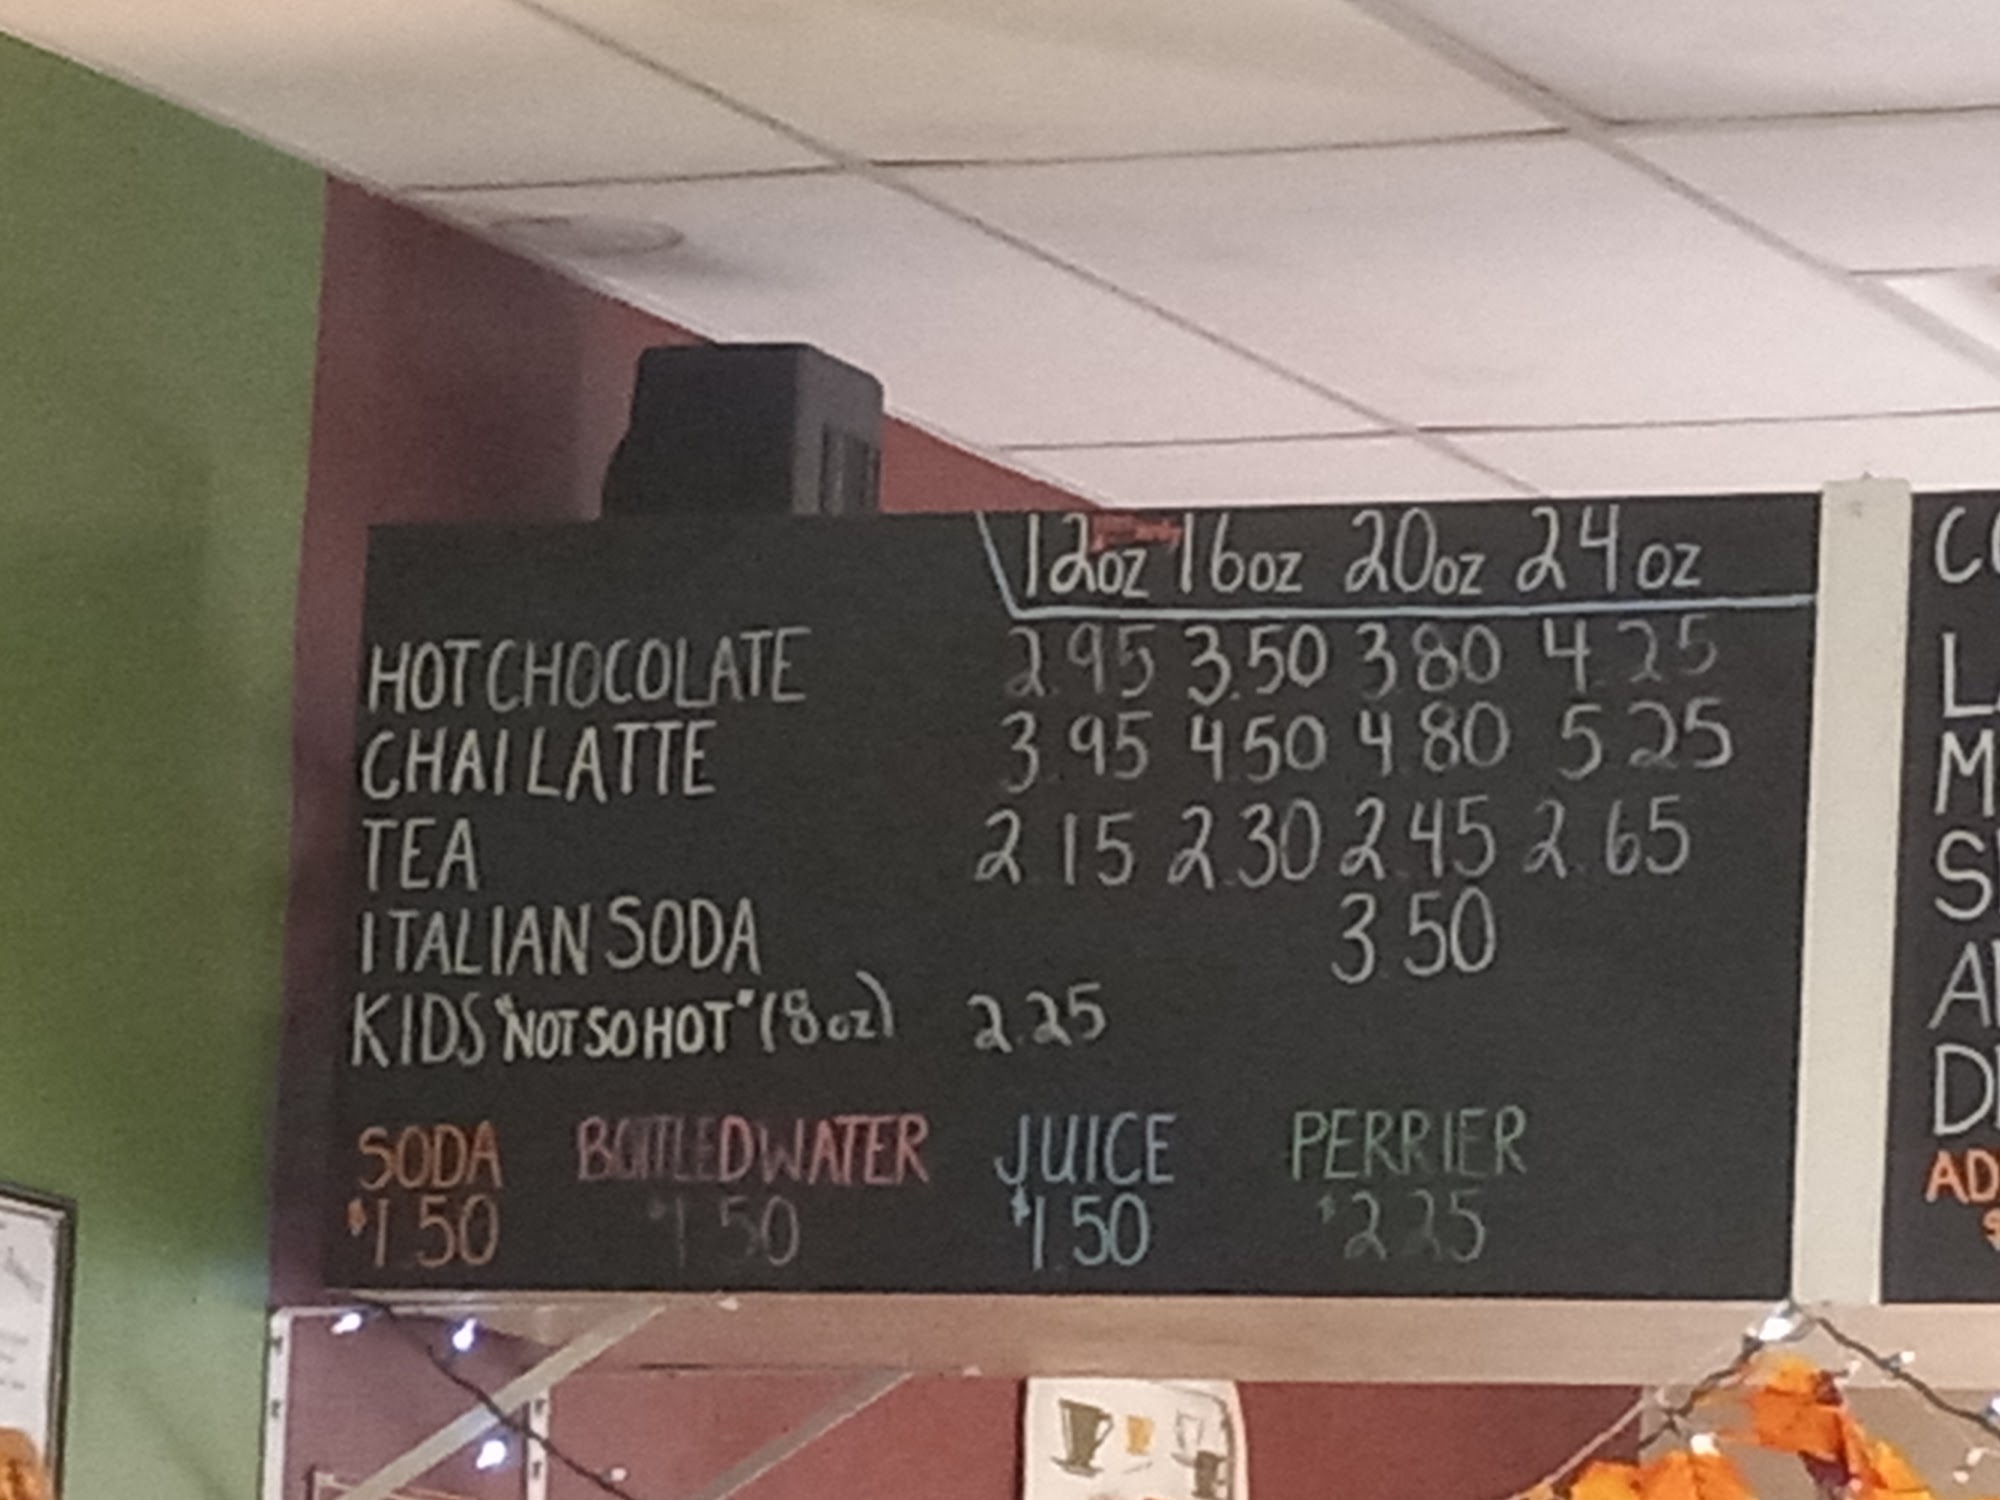 12oz 16oz 20oz 24oz
HOT CHOCOLATE 2.95 3.50 3.80 4.25
CHAI LATTE 3.95 4.50 4.80 5.25
TEA 2.15 2.30 2.45 2.65
ITALIAN SODA 3.50
KIDS "NOT SO HOT" (8oz) 2.25
SODA BOTTLED WATER JUICE PERRIER
$1.50 $1.50 $1.50 $2.25
CO
LA
M
S
A
D
AD
$